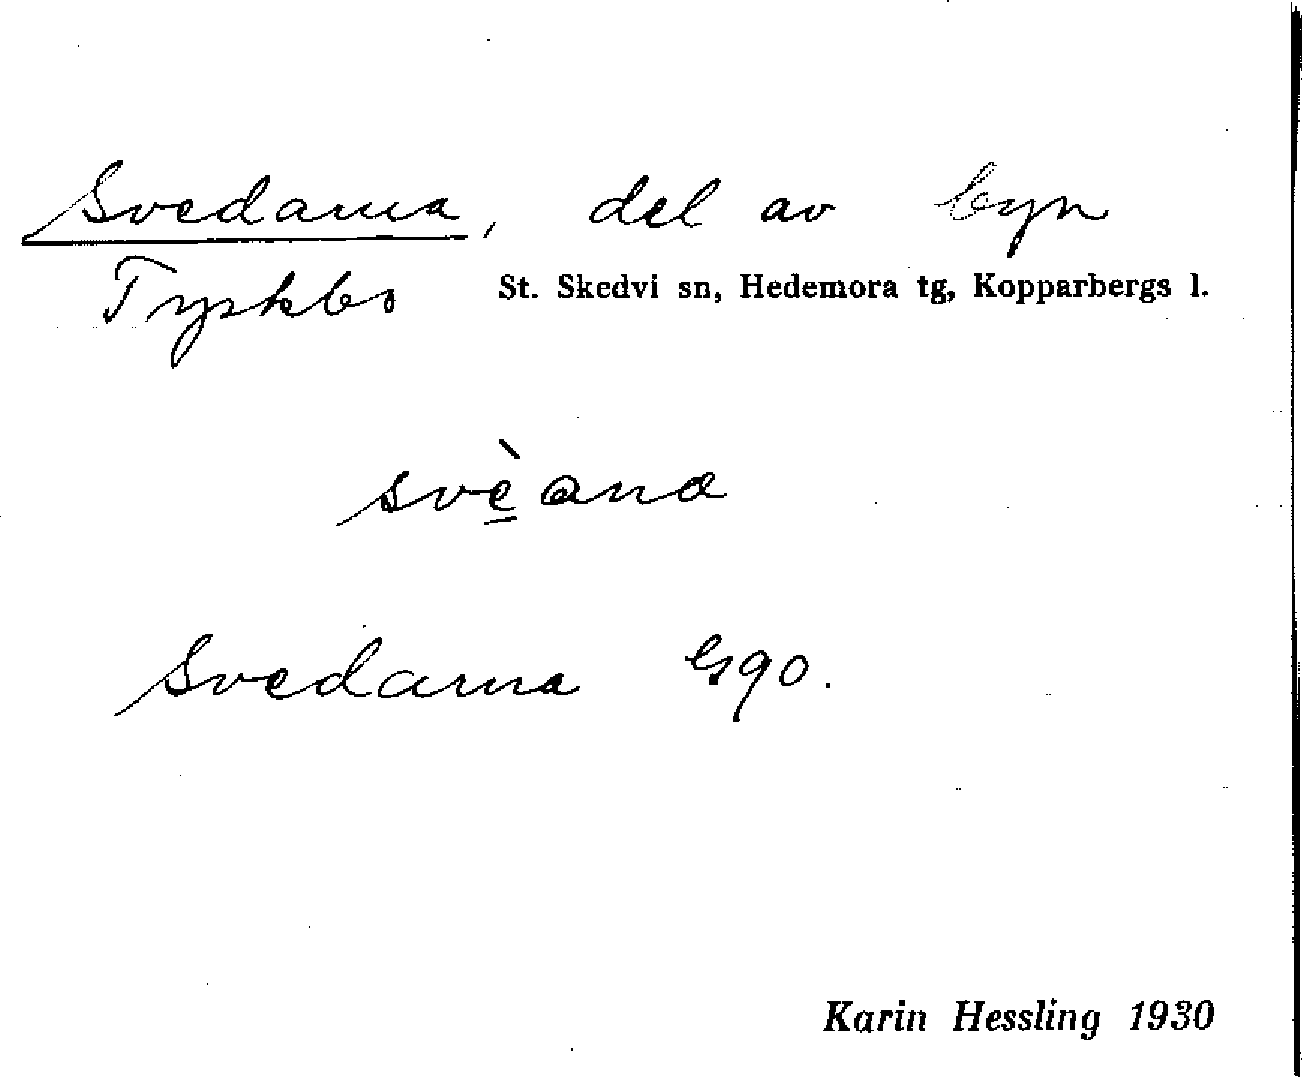 Svedarna, del av byn
Tyskbo St. Skedvi sn, Hedemora tg, Kopparbergs l.
svè̱ana
Svedarna
Karin Hessling 1930